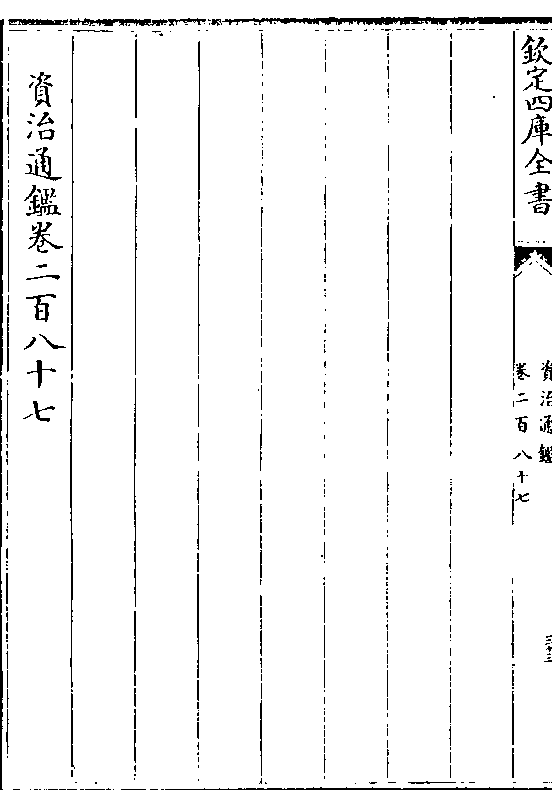 欽定四庫全書
資治通鑑
卷二百八十七
資治通鑑卷二百八十七